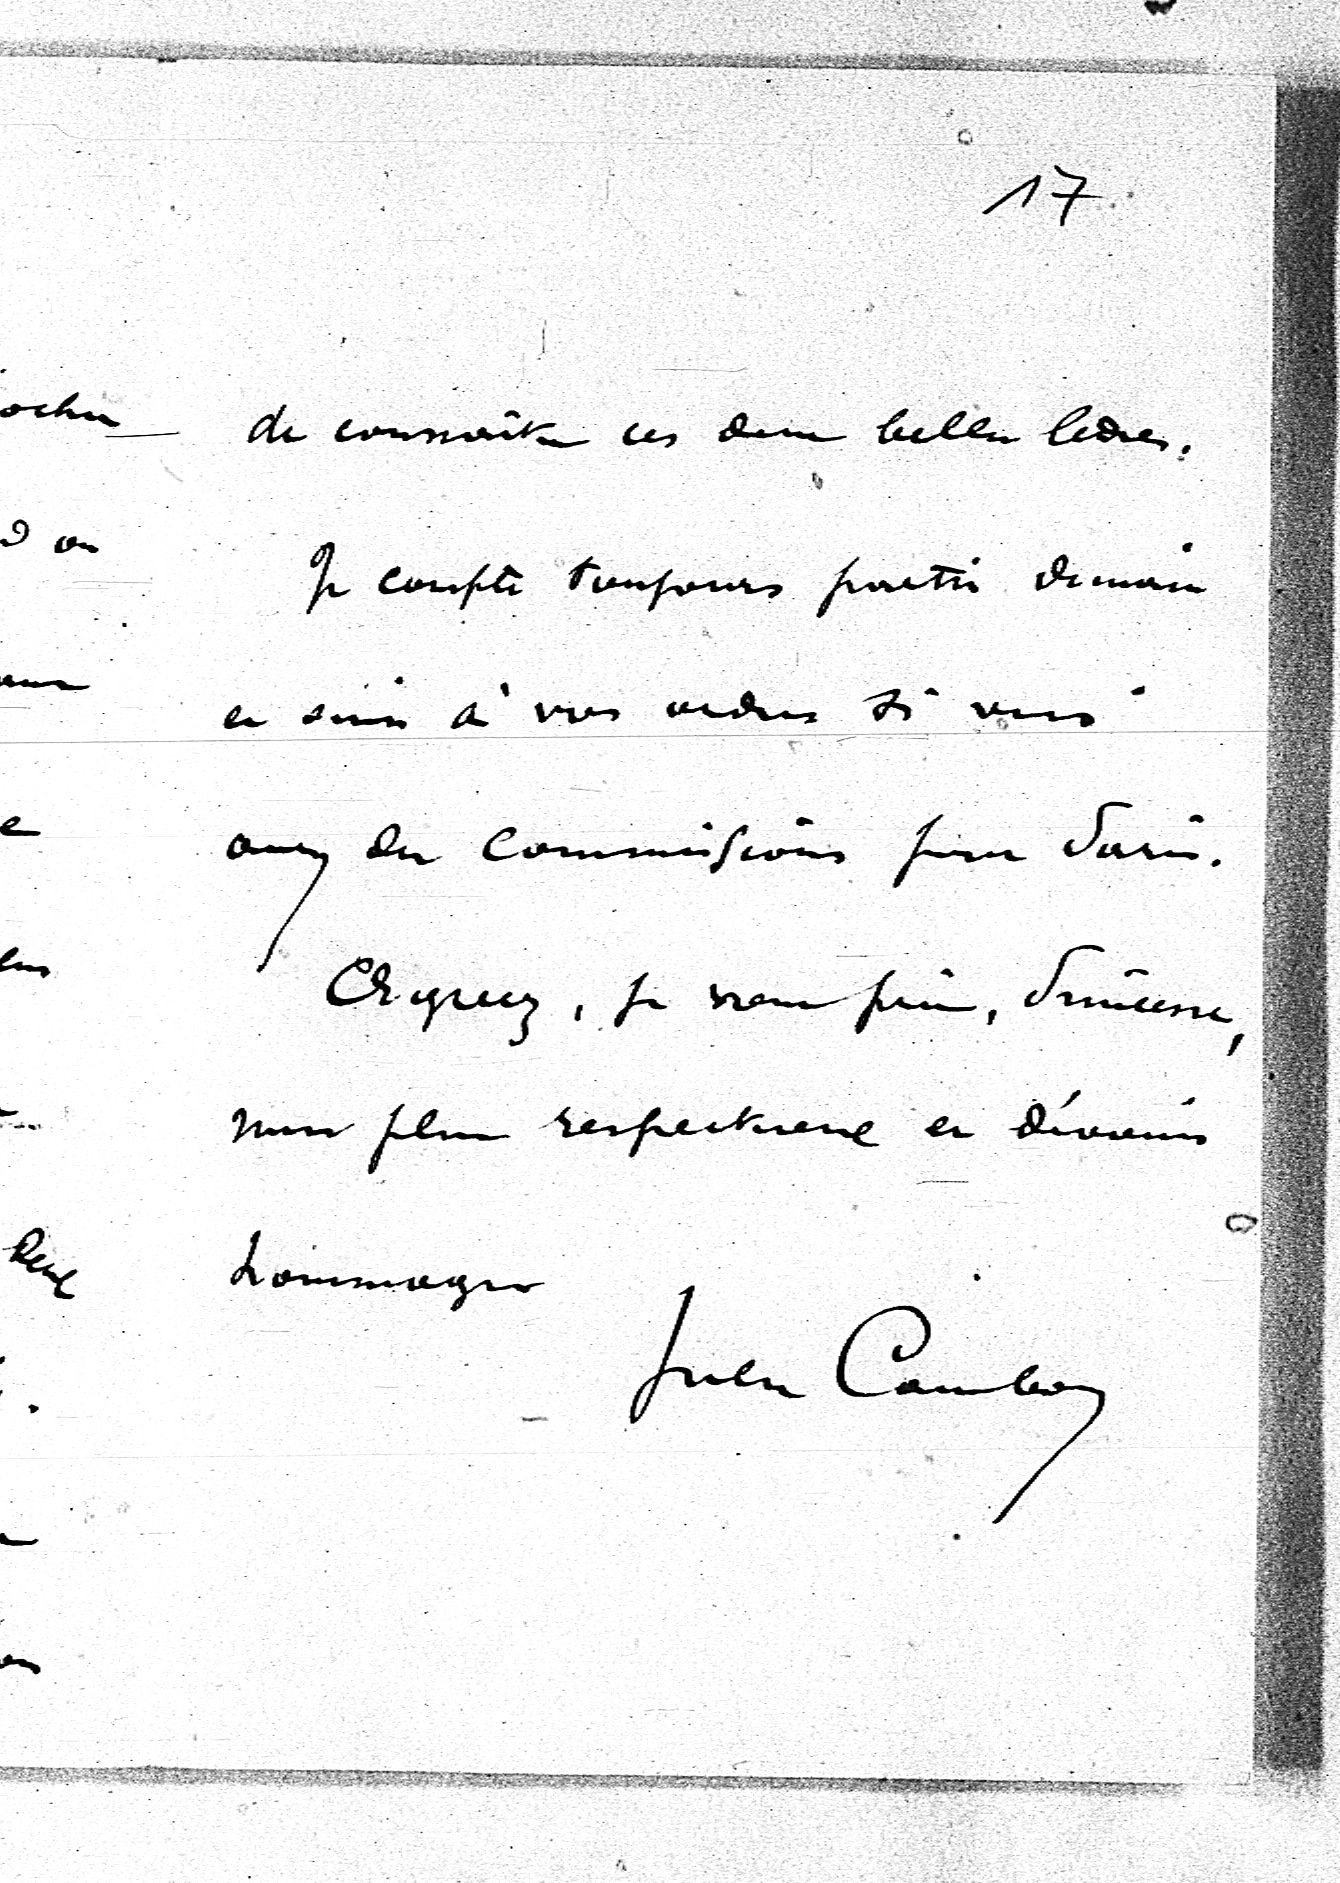 17
de connaître ces deux belles lettres.
Je compte toujours partir demain
et suis à vos ordres si vous
avez des commissions pour Paris.
Agréez, je vous prie, Princesse,
mes plus respectueux et dévoués
hommages
Jules Cambon